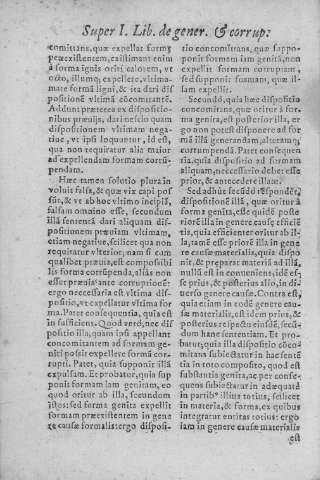 Super I. Lib. de gener. & corrup:
comitans, quæ expellat formã
præexistentem, existimant enim
à forma ignis oriri calorem, vt
octo, illumq; expellere, vltima-
mate formã ligni, & ita dari dis
positionẽ vltimã cõcomitantẽ.
Addunt præterea ex dispositio-
nibus præuijs, dari nescio quam
dispositionem vltimam nega-
tiue, vt ipsi loquuntur, id est,
qua non requiratur alia maior
ad expellendam formam corrũ-
pendam.
Hæc tamen solutio plura in
voluit falsa, & quæ vix capi pos
sũt, & vt ab hoc vltimo incipiã,
falsam omnino esse, secundum
illã sententiã dari aliquam dis-
positionem præuiam vltimam,
etiam negatiue, scilicet qua non
requiratur vlterior; nam si cum
qualibet præuia, est compossibi
lis forma corrũpenda, aliàs non
esset præuia ante corruptionẽ:
ergo neccessaria est vltima dis-
positio, vt expellatur vltima for
ma. Patet consequentia, quia est
in sufficiens. Quod verò, nec dis
positio illa, quam ipsi appellant
concomitantem ad formam ge-
niti possit expellere formã cor-
rupti. Patet, quia supponit illã
expulsam. Et probatur, quia sup
ponit formam iam genitam, eo
quod oritur ab illa, secundum
istos: sed forma genita expellit
formam præexistentem in gene
re causæ formalis: ergo disposi-
tio concomitans, quæ suppo-
ponit formam iam genitã, non
expellit formam corrupiam,
sed supponit fuaniam, quàm ex
illam expellit.
Secundò, quia hæc dispositio
concomitans, quæ oritur à for
ma genita, est posterior illa, er
go non potest disponere ad for
mã illã generandam, alteramq;
corrumpendã. Patet consequen
tia, quia dispositio ad formam
aliquam, neccessario debet esse
prior, & antecedere illam.
Sed adhuc secũdò respondẽt,
dispositionẽ illã, quæ oritur à
forma genita, esse quidẽ poste
riorẽ in genere causę efficiẽ
tis, quia efficienter oritur ab il-
la, tamẽ esse priorẽ illa in gene
re causæ materialis, quia dispo
nit, & preparat materiã ad illã,
nullã est in conueniens, idẽ es-
se priùs, & posteriùs alio, in di-
uerso genere causæ. Contra est,
quia etiam in eodẽ genere cau-
sæ materialis, est idem priùs, &
posterius respectu ipsius, secũ-
dum hanc sententiam. Et pro-
batur, quia illa dispositio cõco-
mitans subiectatur in hac sentẽ
tia in toto composito, quod est
substantia genita, ac per conse-
quens subiectatur in adæquatè
in partib⁹ illius totius, scilicet
in materia, & forma, ex quibus
integratur entitas totius: ergo
iam in genere causæ materialis
est